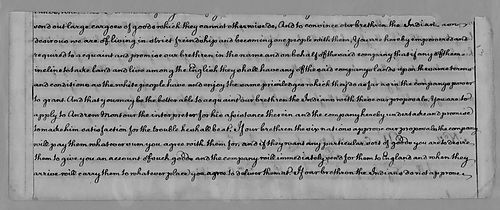 send out large cargoes of goods which they cannot otherwise do, And to convince our brethren the Indians, how
desirous we are of living in strict friendship and becoming one people with them, You are hereby impowered and
required to acquaint and promise our brethren in the name and on behalf of the said company that if any of them
incline to take land and live among the English they shall have any of the said company's lands upon the same terms
and conditions as the white people have and enjoy the same priviledges which they do as far as in the company's power
to grant. And that you may be the better able to acquaint our brethren the Indians with these our proposals, You are to
apply to Andrew Montour the interpreter for his assistance therein and the company hereby undertake and promise
to make him satisfaction for the trouble he shall be at; If our brethren the six nations approve our proposals the company
will pay them whatever sum you agree with them for, and if they want any particular sort of goods you are to desire
them to give you an account of such goods and the company will immediately send for them to England and when they
arrive will carry them to whatever place you agree to deliver them at. If our brethren the Indians do not approve